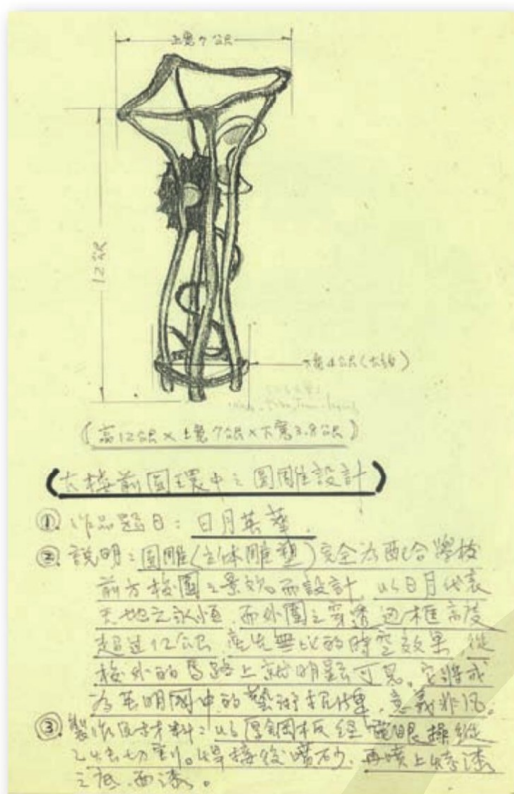 上寬7公尺
12公尺
下寬4公尺(大約)
(高12公尺×上寬7公尺×下寬3.8公尺)
(大樓前圓環中之圓雕設計)
①. 作品題目:日月英華.
②. 說明:圓雕(立体雕塑)完全為配合學校
前方校園之景效而設計,以日月代表
天地之永恒,而外圍之穿透边框高度
超过12公尺 產生無比的時空效果,從
校外的馬路上就明顯可見,它將成
為英明國中的藝術指標,意義非凡。
③. 製作及材料:以厚鋼板經電眼操縱
之火切割。焊接後噴砂,再噴上烤漆
之底、面漆。